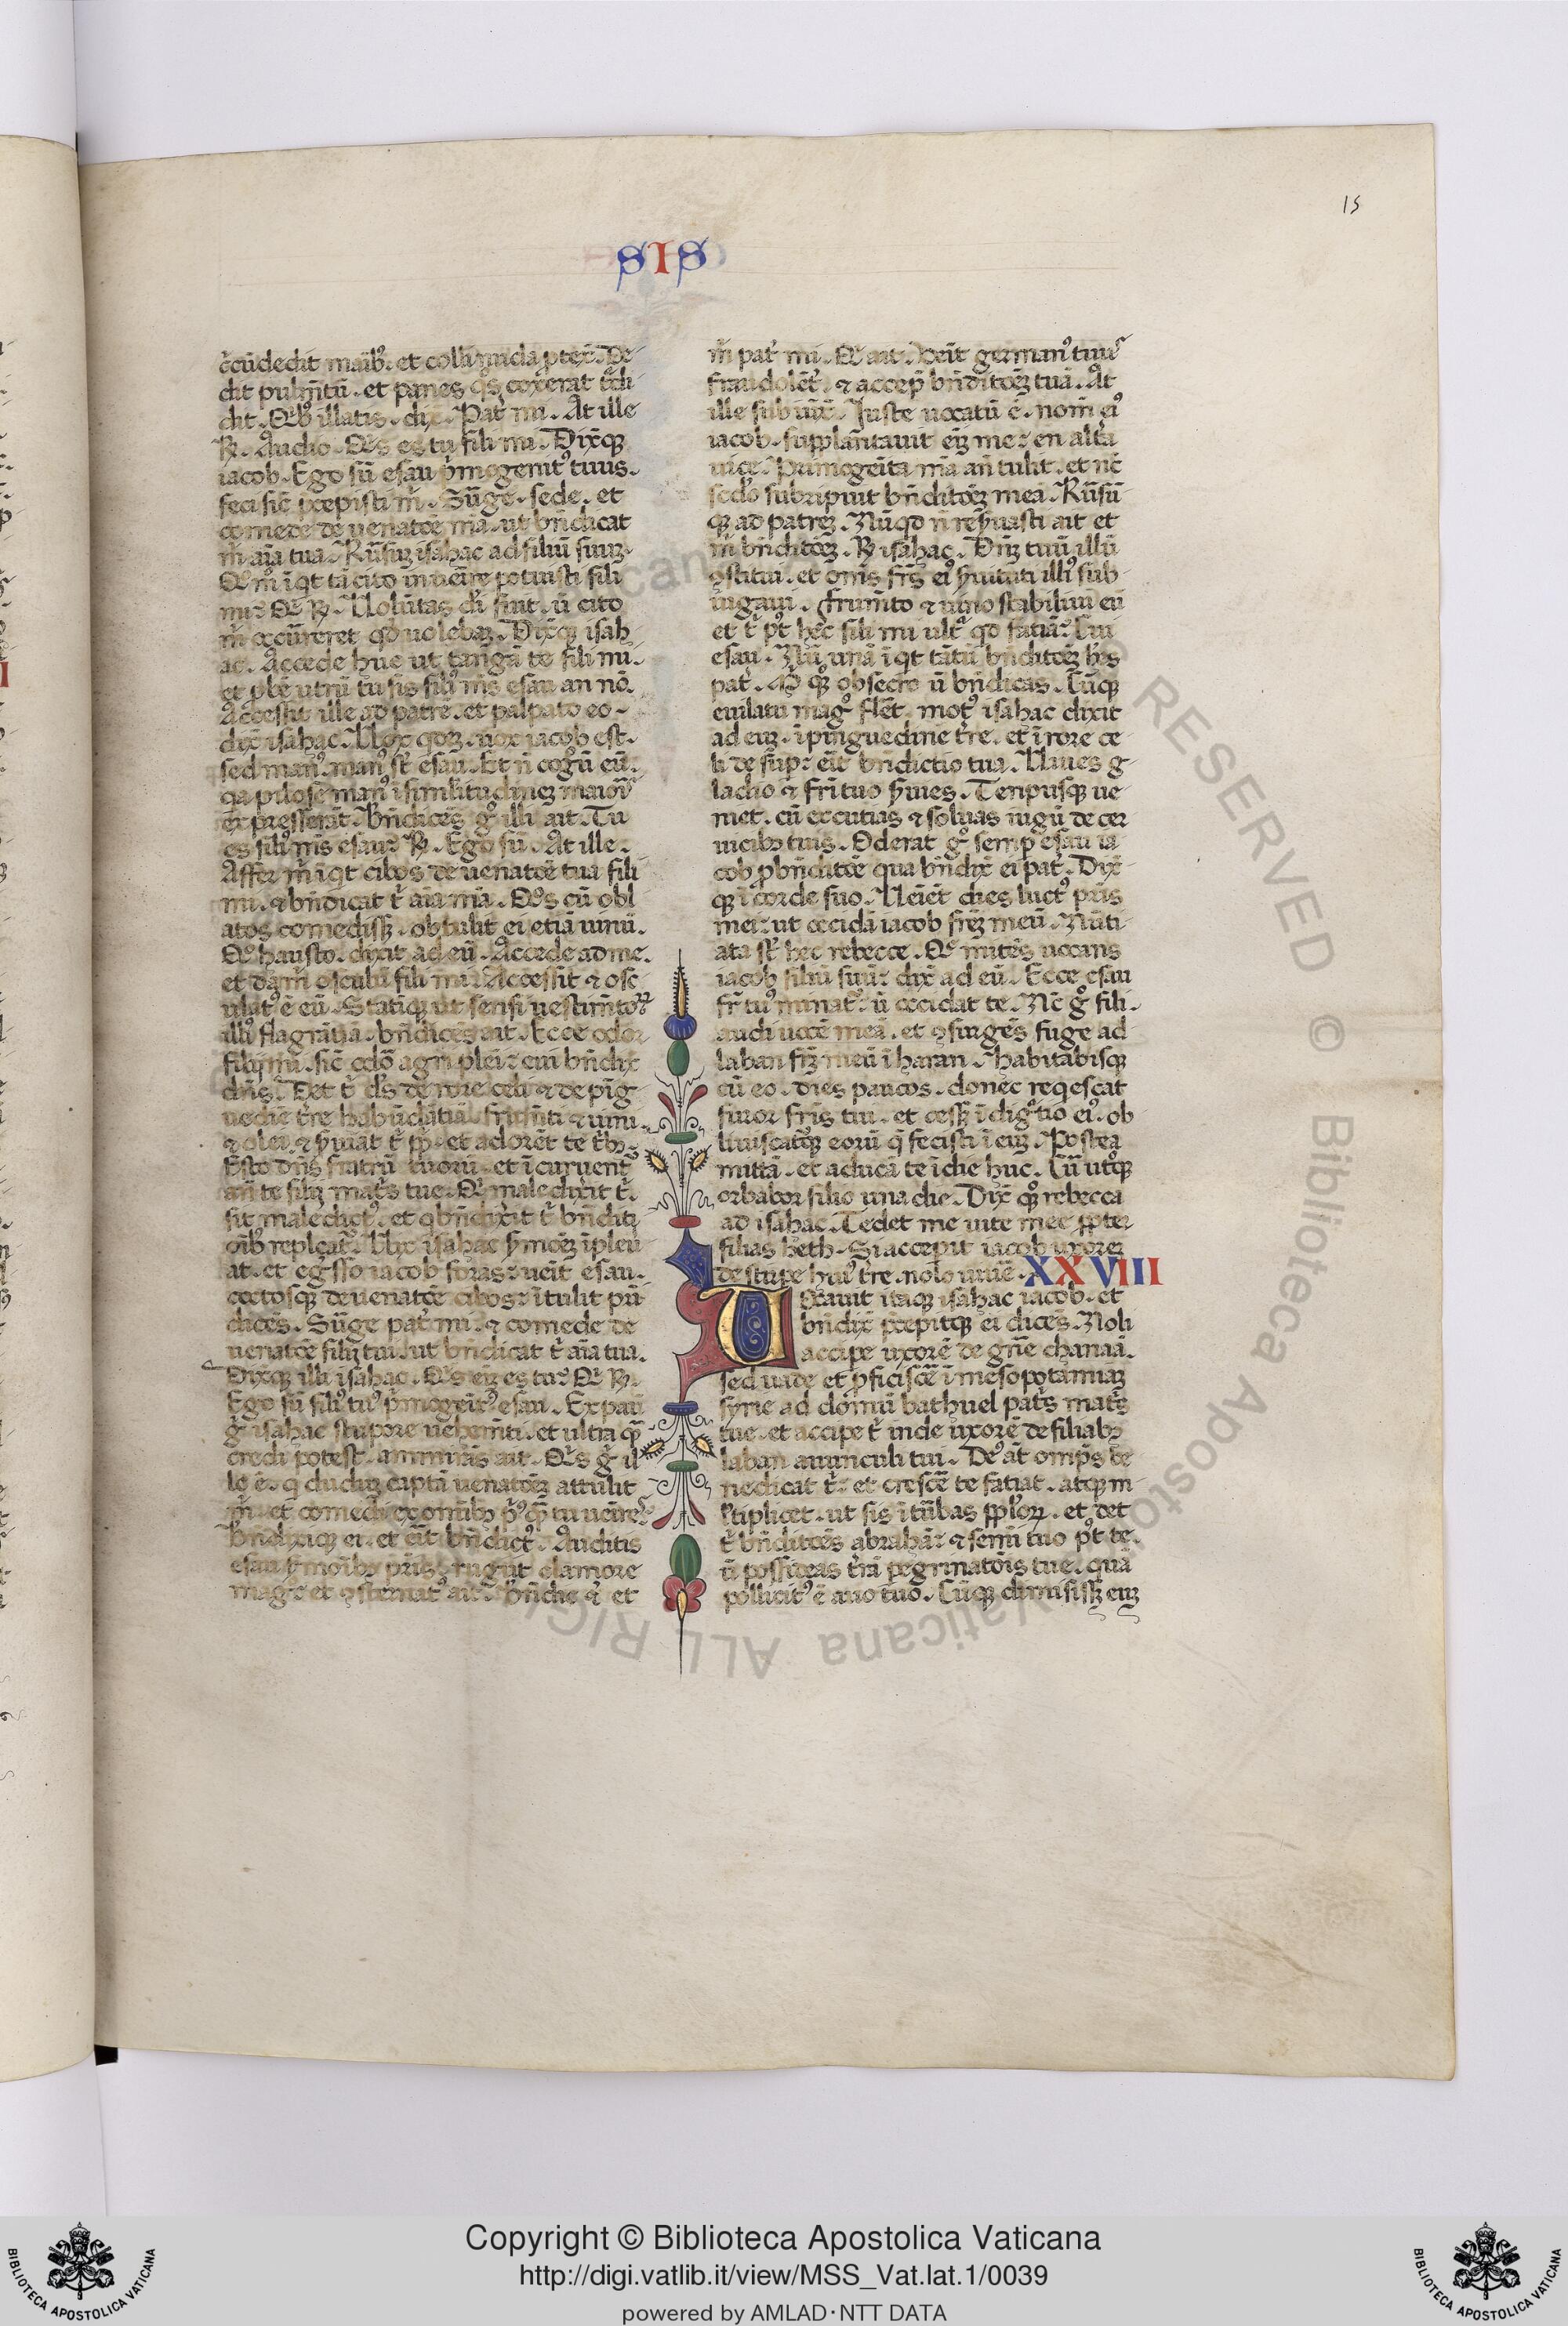 15
SIS
c̄cūdedit maībꝰ. et colli nuda ꝓtex̄. De
dit pulm̄tū. et panes q̇s coxerat t̄di
dit. Qꝰb illatis. dix̄. Pat̉ mi. At ille
R̷. Audio. Q̇s es tu fili mi. Dix̄qꝫ
iacob. Ego sū esau p̄mogenitꝰ tuus.
feci sic̄ p̄cepisti m̄. Sūge. sede. et
comede de uenatōe mā. ut bn̄dicat
m̄ aīa tua. Rūsuꝫ isahac ad filiū suuꝫ.
Qūo īqt tā cito inuēire potuisti fili
mi? Q̇ R̷. Uolūtas dī fuit. ū cito
m̄ occūreret qd̄ uolebaꝫ. Dix̄qꝫ isah
ac. Accede huc ut tangā te fili mi.
et ꝓbē utrū tu sis filiꝰ m̄s esau an nō.
Accessit ille ad patrē. et palpato eo
dix̄ isahac. Uox qdeꝫ. uox iacob est.
sed manꝰ. manꝰ st̄ esau. Et n̄ cogꝰū eū.
qa pilose manꝰ ī similitudineꝫ maiorꝭ
exp̄sserāt. Bn̄dicēs gͦ illi ait. Tu
es filiꝰ m̄s esau? R̷. Ego sū. At ille.
Affer m̄ īqt cibos de uenatōe tua fili
mi. ꞇ bn̄dicat t̄ aīa mā. Q̇s cū obl
atos comedissꝫ. obtulit ei etiā uinū.
Q̇ hausto. dixit ad eū. Accede ad me.
et da m̄ osculū fili mi. Accessit ꞇ osc
ulatꝰ ē eū. Statīqꝫ ut sensit uestimto₄
illiꝰ flagrātiā. bn̄dicēs ait. Ecce odor
filij mī. sic̄ odō agri pleī. cui bn̄dix̄
dn̄s. Det t̄ dꝰs de rore celi ꞇ de pīg
uedie t̄re habūdātiā frum̄ti ꞇ uini.
ꞇ olei. ꞇ s̄uiāt t̄ ppl̄i. et adorēt te t̄bꝫ.
Esto dn̄s fratrū tuorū. et īcuruent̄
an̄ te filij mat̉s tue. Q̇ maledix̄it t̄.
sit maledictꝰ. et q bn̄dix̄it t̄ bn̄diti
oībꝰ repleat̄. Uix isahac s̄moēꝫ īpleu
at. et eg̉sso iacob foras: uēit esau.
coctosqꝫ de uenatōe cibos: ītulit pr̄i
dicēs. Sūge pat̉ mi. ꞇ comede de
uenatōe filij tui. ut bn̄dicat t̄ aīa tua.
Dix̄qꝫ illi isahac. Q̇s eīꝫ es tu? Q̇ R̷.
Ego sū filiꝰ tuꝰ p̄mogeitꝰ esau. Expaū
g̉ isahac stupore uehem̄ti. et ultra qͣ
credi potest. ammirās ait. Q̇s g̉ il
le ē. q̇ duduꝫ captā uenatōeꝫ attulit
m̄. et comedi ex om̄ibꝫ pͥꝰ qͣ tu uēires.
Bn̄dixiqꝫ ei. et eīt bn̄dictꝰ. Auditis
esau s̄moībꝫ pr̄is. rugiit clamore
mag̉. et ꝯst̉natꝰ ait. Bn̄dic ꞇ et
m̄ pat̉ mi. Q̇ ait. Ueīt germanꝰ tuuꝰ
fraudolēt̉. ꞇ accep̄ bn̄ditoēꝫ tuā. At
ille subiūx̄. Iuste uocatū ē. nom̄ eiꝰ
iacob. supplantauit eīꝫ me: en alt̉a
uice. Primogeīta mā an̄ tulit. et nc̄
scdͦo subripuit bn̄ditoēꝫ meā. Rūsū
qꝫ ad patreꝫ. Nūqd n̄ res̄uasti ait et
m̄ bn̄ditoēꝫ. R̷ isahac. Dn̄ꝫ tuū illū
ꝯstitui. et om̄s fr̄s eiꝰ s̄uituti illiꝰ sub
iugaui. frum̄to ꞇ uino stabiliui eū
et t̄ pꝰt hec fili mi ultͣ qd faciā? Cui
esau. Nū unā īqt tātū bn̄ditoēꝫ hēs
pat̉. M̄ qͦꝫ obsecro ū bn̄dicas. Cūqꝫ
eiulatu magͦ flēt. motꝰ isahac dixit
ad eūꝫ. ī pinguedine t̄re. et ī rore ce
li de sup̄: eīt bn̄dictio tua. Uiues g
ladio ꞇ fr̄i tuo s̄uies. Tempusqꝫ ue
niet. cū excutias ꞇ soluas iugū de cer
uicibꝫ tuis. Oderat gͦ semꝑ esau ia
cob ꝓ bn̄ditoē qua bn̄dix̄ ei pat̉. Dix̄
qꝫ ī corde suo. Ueīēt dies luctꝰ pr̄is
mei: ut occidā iacob fr̄eꝫ meū. Nūti
ata st̄ hec rebecce. Q̄ mitēs uocans
iacob filiū suū: dix̄ ad eū. Ecce esau
fr̄ tuꝰ minat̄. ū occidat te. Nc̄ gͦ fili.
audi uocē meā. et ꝯsurgēs fuge ad
laban fr̄eꝫ meū ī haran. habitabisqꝫ
cū eo. dies paucos. donec reqescat
furor fr̄is tui. et cessꝫ īdigͣtio eiꝰ. ob
liuiscat̄qꝫ eorū q̄ fecisti ī eūꝫ. Postea
mittā. et aducā te īdie huc. Cū ut̉qꝫ
orbabor filio una die. Dix̄ qͦꝫ rebecca
ad isahac. Tedet me uite mee ꝓpter
filias heth. Si accepit iacob uxoreꝫ
de stirpe huiꝰ t̄re. nolo uiuē. XXVIII
Uocauit itaqꝫ isahac iacob. et
bn̄dix̄ p̄cepitqꝫ ei dicēs. Noli
accipe uxorē de gn̄e chanaā.
sed uade et ꝓficiscē ī mesopotamiaꝫ
syrie ad domū bathuel pat̉s mat̉s
tue. et accipe t̄ inde uxorē de filiabꝫ
laban auunculi tui. Dꝰs āt omp̄s be
nedicat t̄: et crescē te faciat. atqꝫ m
l̄tiplicet. ut sis ī tūbas ppl̄oꝝ. et det
t̄ bn̄ditoēs abrahā: ꞇ semī tuo pꝰt te.
ū possideas t̄rā pegrinatōis tue. quā
pollicitꝰ ē auo tuo. Cūqꝫ dimisissꝫ eūꝫ
Copyright © Biblioteca Apostolica Vaticana
http://digi.vatlib.it/view/MSS_Vat.lat.1/0039
powered by AMLAD·NTT DATA